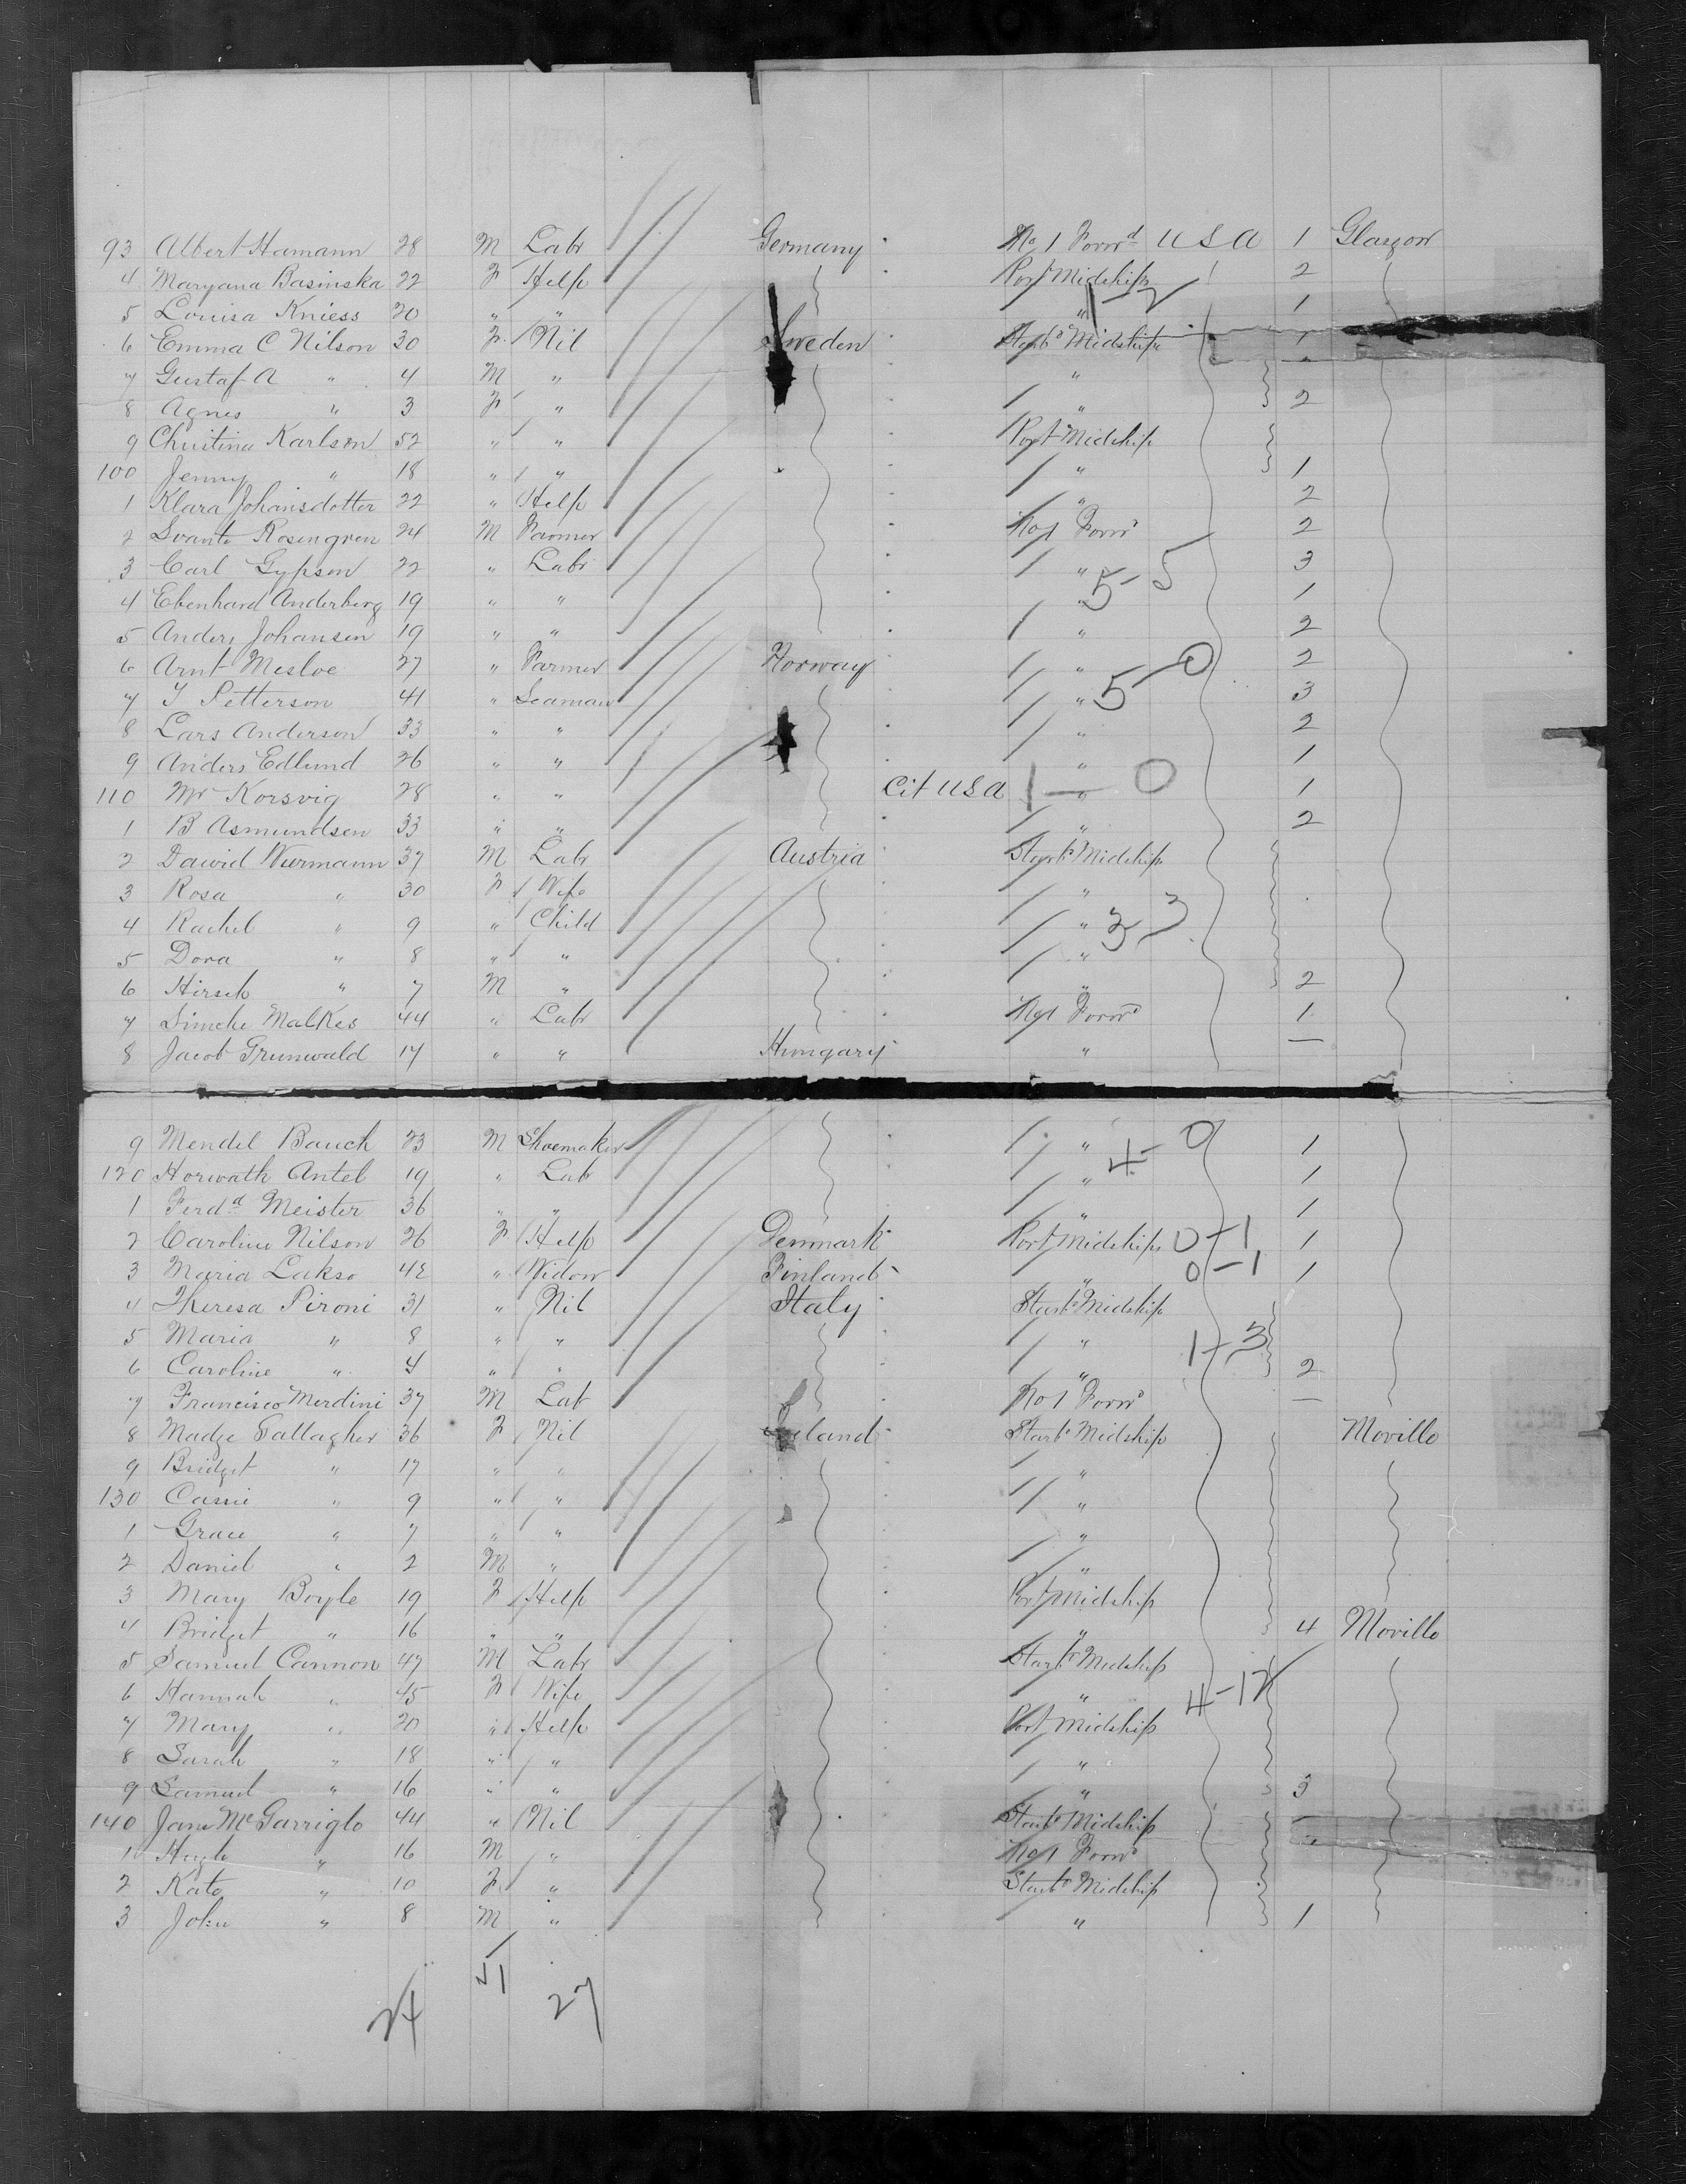 93 Albert Hamann 28 M Labr Germany No 1 Forwd U S A 1 Glasgow
4 Maryana Basinska 22 F Help Port Midships 2
5 Louisa Kniess 20 " " " 1-2 1
6 Emma C Nilson 30 F Nil Sweden Starbd Midship 1
7 Gustaf A " 4 M " " "
8 Agnes " 3 F " " 2
9 Christina Karlson 52 " " Port Midship
100 Jenny " 18 " " " 1
1 Klara Johansdotter 22 " Help " 2
2 Svante Rosengren 24 M Farmer No 1 Forwd 2
3 Carl Gypson 22 " Labr " 5-5 3
4 Ebenhard Anderberg 19 " " " 1
5 Anders Johansen 19 " " " 2
6 Arnt Mesloe 27 " Farmer Norway " 5-0 2
7 Petterson 41 " Seaman " 3
8 Lars Anderson 33 " " " 2
9 Anders Edlund 26 " " " 1
110 Mr Korsvig 28 " " Cit USA 1-0 " 1
1 B Asmundsen 33 " " " 2
2 Dawid Wurmann 37 M Labr Austria Starbd Midship
3 Rosa " 30 F Wife "
4 Rachel " 9 " Child " 3-3
5 Dora " 8 " " "
6 Hirsch " 7 M " " 2
7 Simche Malkes 44 " Labr No 1 Forwd 1
8 Jacob Grunwald 17 " " Hungary " —
9 Mendel Bauch 23 M Shoemaker " 4-0 1
120 Horwath Antel 19 " Labr " 1
1 Ferdd Meister 36 " " " 1
2 Caroline Nilson 26 F Help Denmark Port Midships 0-1 1
3 Maria Lakso 42 " Widow Finland " 0-1 1
4 Theresa Pironi 31 " Nil Italy Starbd Midship
5 Maria " 8 " " " 1-3
6 Caroline " 4 " " " 2
7 Francisco Merdini 37 M Lab No 1 Forwd —
8 Madge Gallagher 36 F Nil Ireland Starbd Midship Moville
9 Bridget " 17 " " "
130 Cassie " 9 " " "
1 Grace " 7 " " "
2 Daniel " 2 M " "
3 Mary Boyle 19 F Help Port Midship
4 Bridget " 16 " " " 4 Moville
5 Samuel Cannon 47 M Labr Starbd Midship
6 Hannah " 45 F Wife " 4-12
7 Mary " 20 " Help Port Midship
8 Sarah " 18 " " "
9 Samuel " 16 " " " 3
140 Jane McGarrigle 44 " Nil Starbd Midship
1 Hugh " 16 M " No 1 Forwd "
2 Kate " 10 F " Starbd Midship
3 John " 8 M " " 1
24 51 27